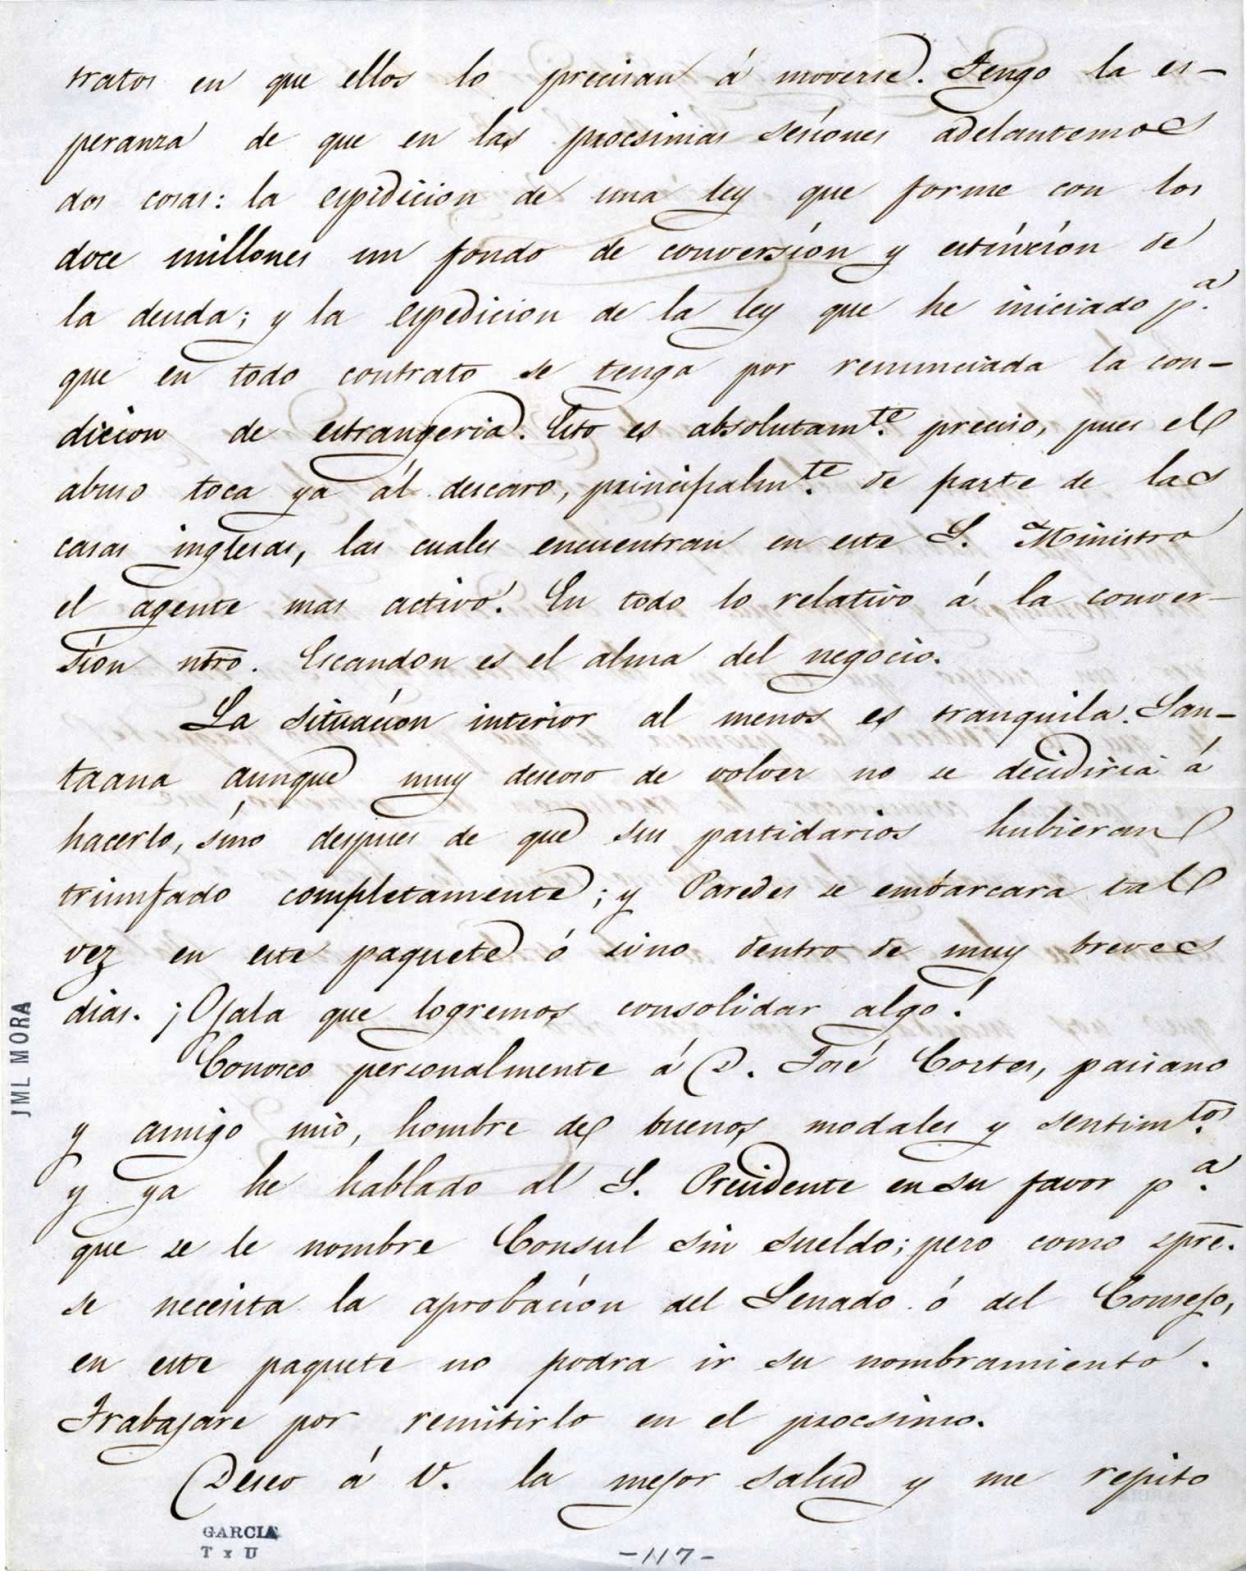 tratos en que ellos lo precisan á moverse. Tengo la es-
peranza de que en las procsimas sesiones adelantemos
dos cosas: la espedicion de una ley que forme con los
doce millones un fondo de conversion y estincion de
la deuda; y la espedicion de la ley que he iniciado p.ª
que en todo contrato se tenga por renunciada la con-
dicion de estrangeria. Esto es absolutam.te preciso, pues el
abuso toca ya al descaro, principalm.te de parte de las
casas inglesas, las cuales encuentran en este S. Ministro
el agente mas activo. En todo lo relativo á la conver-
sion ntro. Escandon es el alma del negocio.
La situacion interior al menos es tranquila. San-
taana aunque muy deseoso de volver no se decidiria á
hacerlo, sino despues de que sus partidarios hubieran
triunfado completamente; y Paredes se embarcara tal
vez en este paquete ó sino dentro de muy breves
dias. ¡Ojala que logremos consolidar algo!
Conosco personalmente á D. José Cortes, paisano
y amigo mio, hombre de buenos modales y sentim.tos
y ya he hablado al S. Presidente en su favor p.ª
que se le nombre Consul sin sueldo; pero como spre.
se necesita la aprobacion del Senado ó del Consejo,
en este paquete no podra ir su nombramiento.
Trabajare por remitirlo en el procsimo.
Deseo á V. la mejor salud y me repito
JML MORA
GARCIA
T x U
-117-